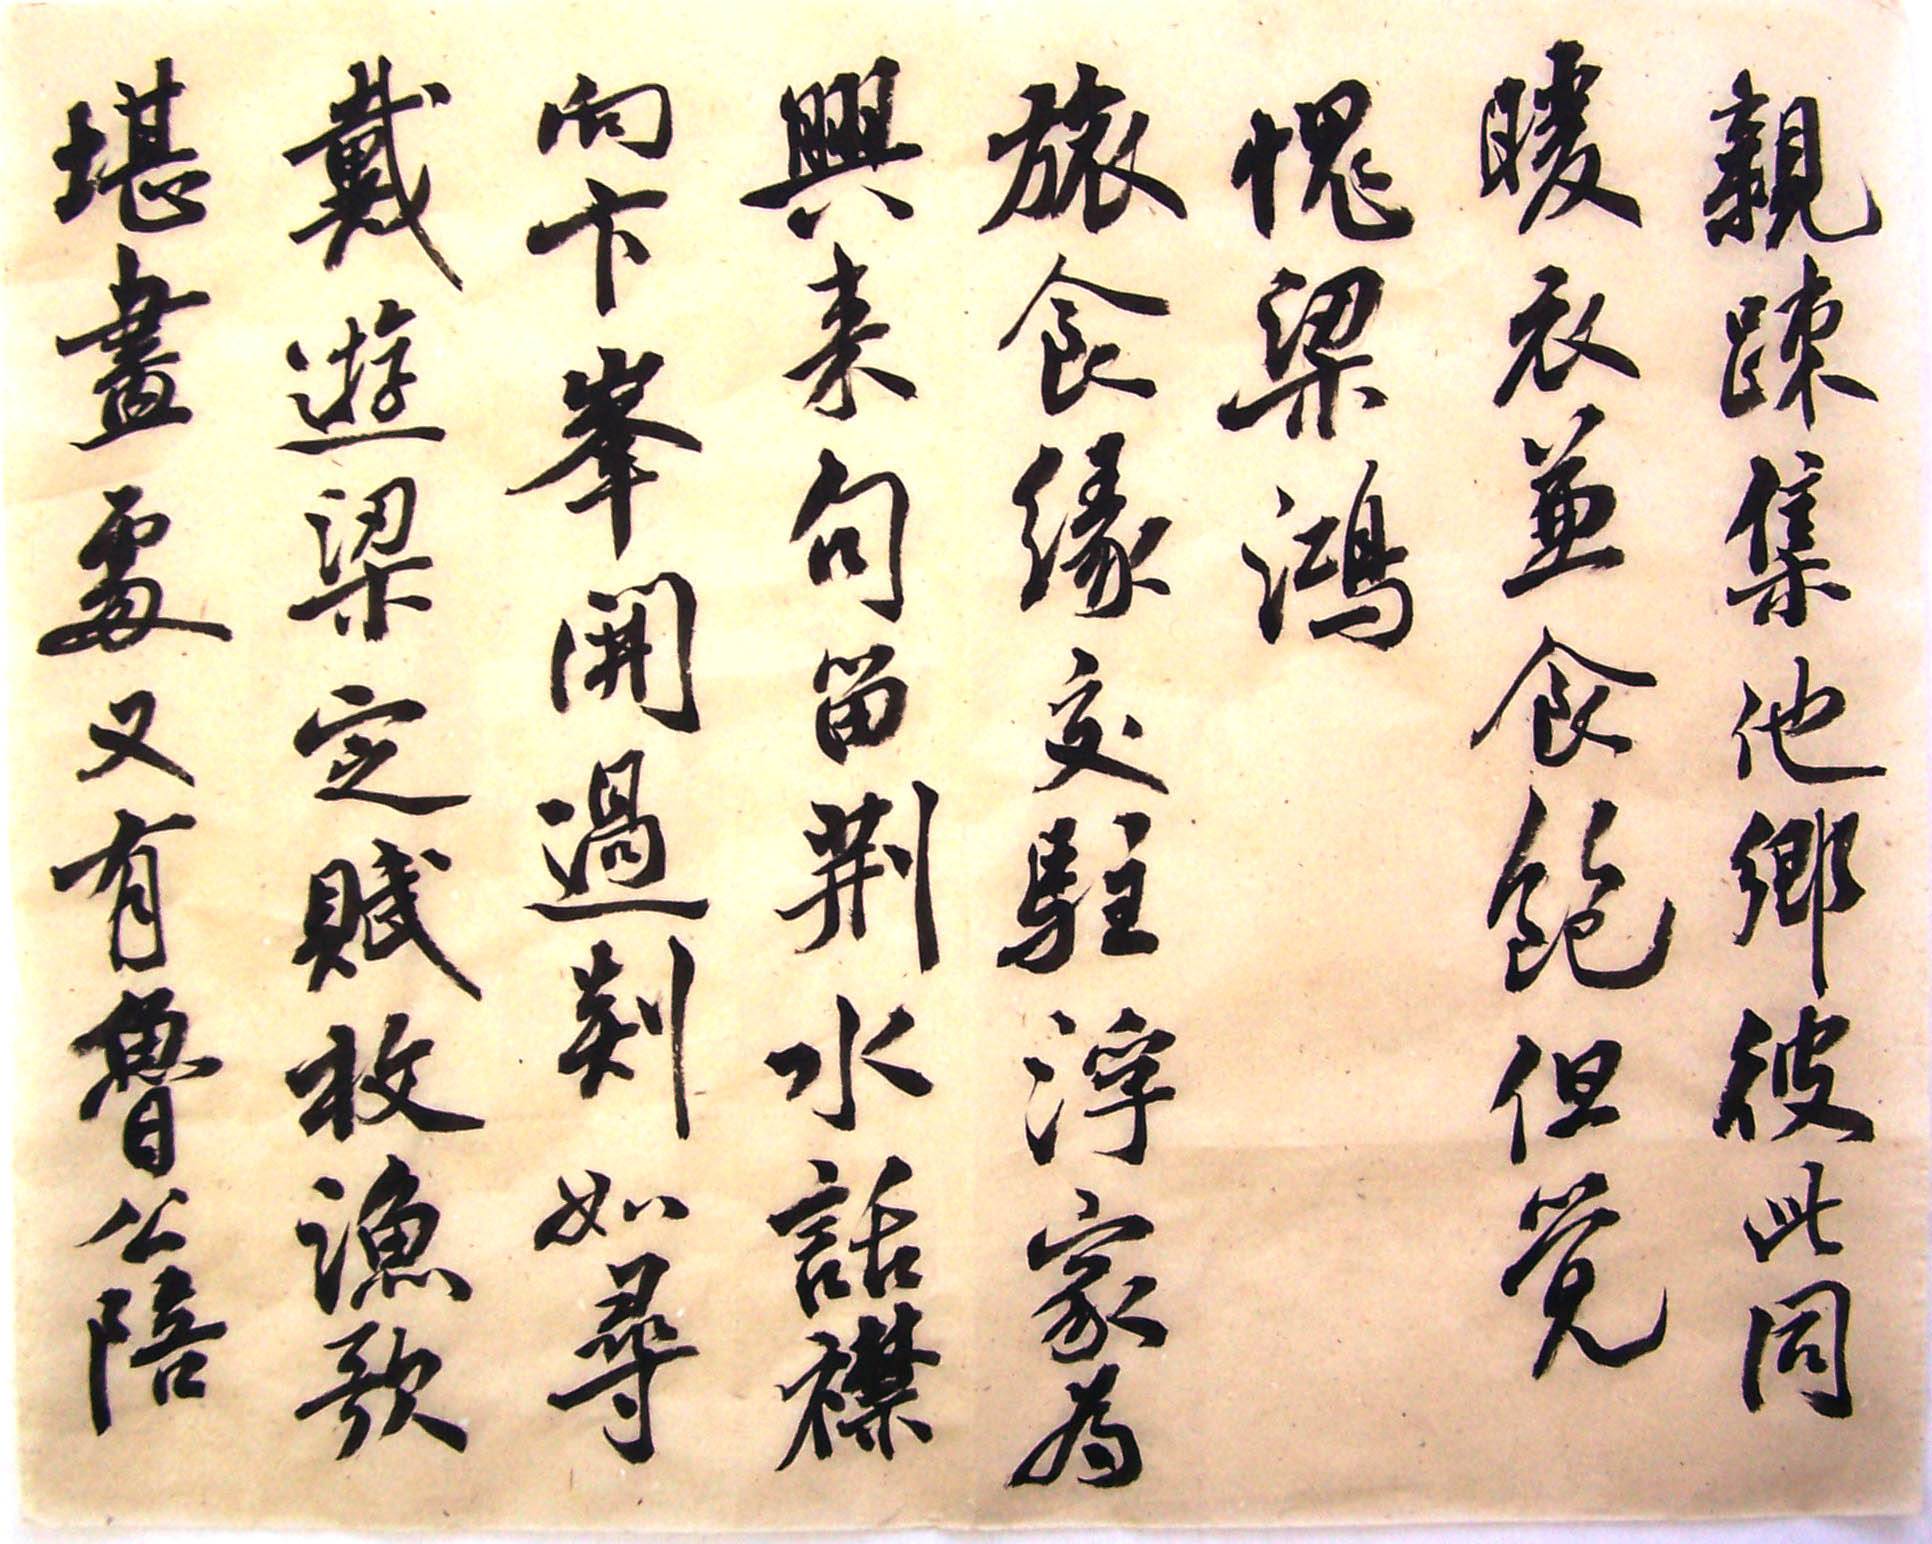 親疎集他鄉彼此同
暖衣並食飽但覺
愧梁鴻
旅食緣交駐浮家為
興来句留荆水話襟
向卞峯開過剡如尋
戴遊梁定賦枚漁歌
堪畫處又有魯公陪